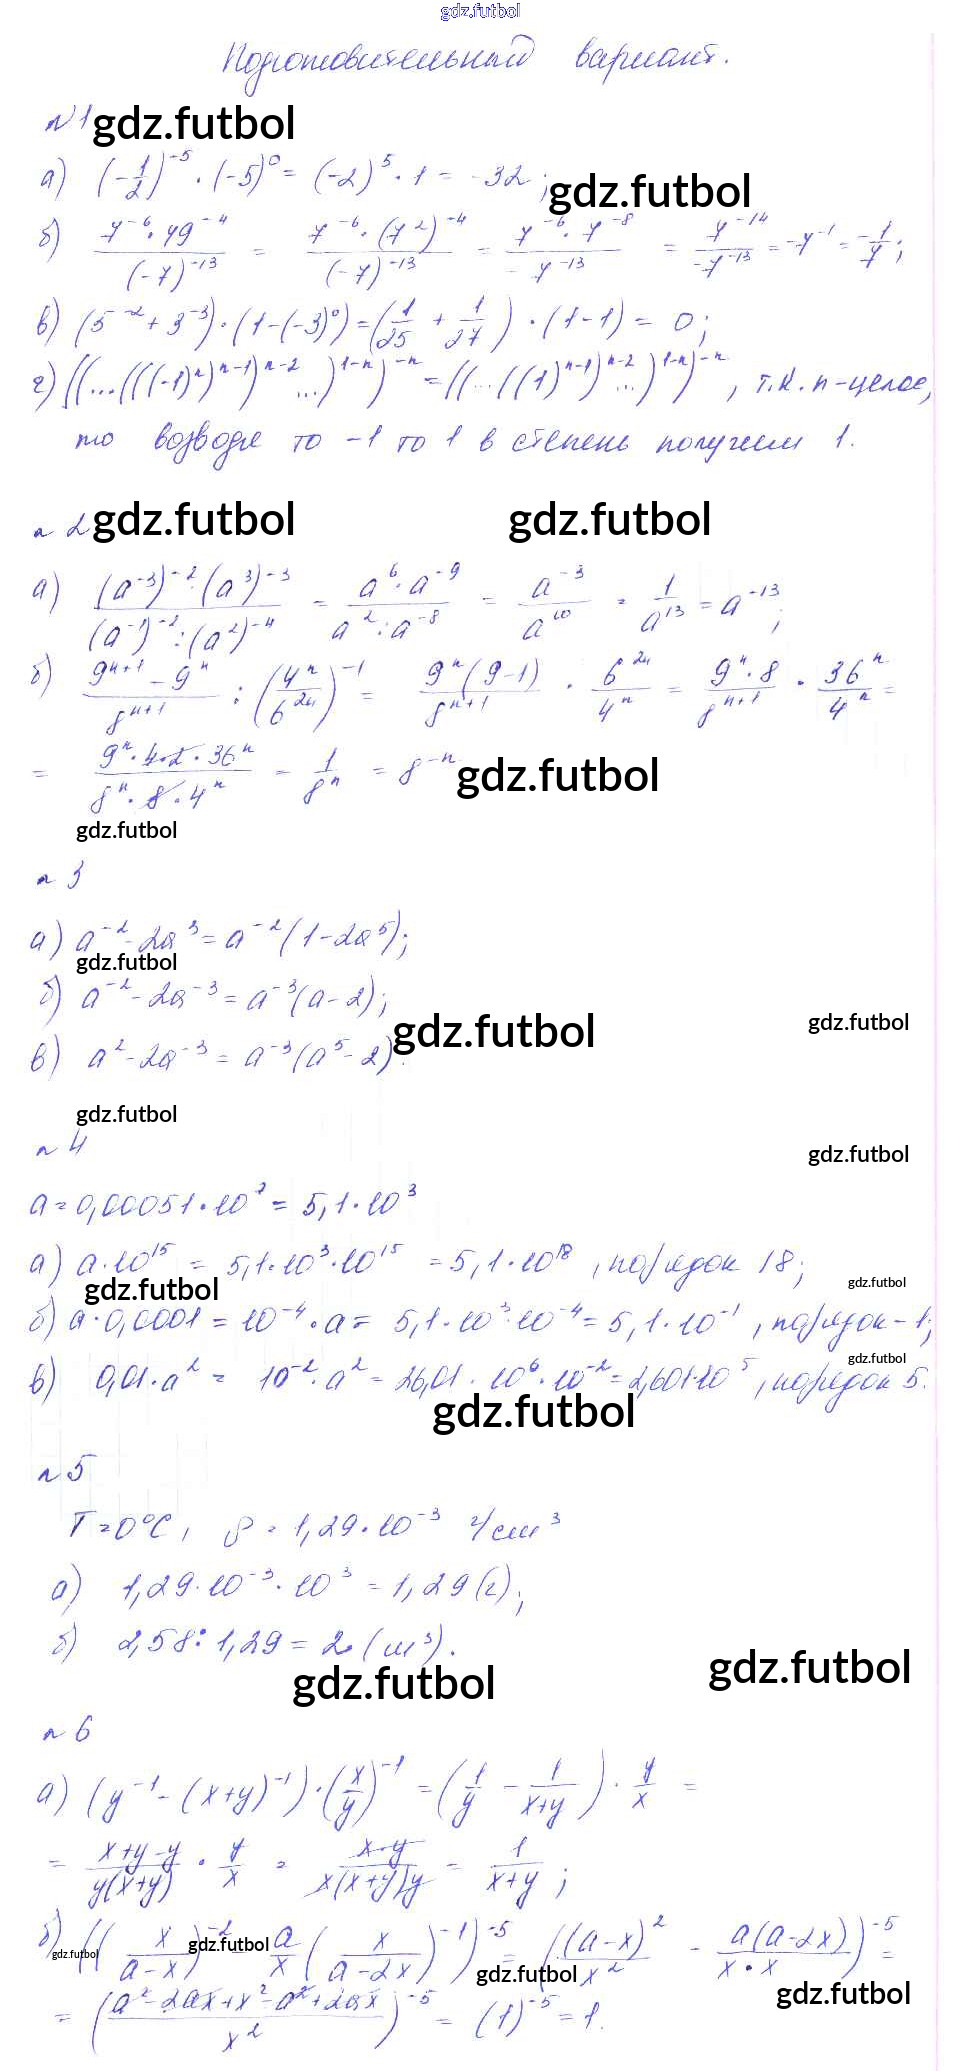 gdz.futbol
Подготовительный вариант.
N1 gdz.futbol
а) (-1/2)^-5 · (-5)^0 = (-2)^5 · 1 = -32; gdz.futbol
б) 7^-6 · 49^-4 / (-7)^-13 = 7^-6 · (7^2)^-4 / (-7)^-13 = 7^-6 · 7^-8 / -7^-13 = 7^-14 / -7^-13 = -7^-1 = -1/7;
в) (5^-2 + 3^-3) · (1-(-3)^0) = (1/25 + 1/27) · (1-1) = 0;
г) ((...(((-1)^n)^n-1)^n-2 ...)^1-n)^-n = ((...((1)^n-1)^n-2 ...)^1-n)^-n, т.к. n-целое,
то возводя то -1 то 1 в степень получим 1.
n 2 gdz.futbol gdz.futbol
а) (a^-3)^-2 · (a^3)^-3 / (a^-1)^-2 : (a^2)^-4 = a^6 · a^-9 / a^2 : a^-8 = a^-3 / a^10 = 1/a^13 = a^-13;
б) 9^n+1 - 9^n / 8^n+1 : (4^n / 6^2n)^-1 = 9^n(9-1) / 8^n+1 · 6^2n / 4^n = 9^n · 8 / 8^n+1 · 36^n / 4^n =
= 9^n · 4·2 · 36^n / 8^n · 8 · 4^n = 1/8^n = 8^-n gdz.futbol
gdz.futbol
n 3
а) a^-2 - 2a^3 = a^-2(1-2a^5);
gdz.futbol
б) a^-2 - 2a^-3 = a^-3(a-2);
gdz.futbol gdz.futbol
в) a^2 - 2a^-3 = a^-3(a^5-2).
gdz.futbol
n 4
gdz.futbol
a = 0,00051·10^7 = 5,1·10^3
а) a·10^15 = 5,1·10^3·10^15 = 5,1·10^18, порядок 18;
gdz.futbol gdz.futbol
б) a·0,0001 = 10^-4·a = 5,1·10^3·10^-4 = 5,1·10^-1, порядок -1;
gdz.futbol
в) 0,01·a^2 = 10^-2·a^2 = 26,01·10^6·10^-2 = 2,601·10^5, порядок 5.
gdz.futbol
n 5
T = 0°C, ρ = 1,29·10^-3 г/см^3
а) 1,29·10^-3·10^3 = 1,29 (г);
б) 2,58 : 1,29 = 2 (м^3).
gdz.futbol gdz.futbol
n 6
а) (y^-1 - (x+y)^-1) · (x/y)^-1 = (1/y - 1/x+y) · y/x =
= x+y-y / y(x+y) · y/x = x·y / x(x+y)y = 1/x+y;
б) ((x/a-x)^-2 - a/x (x/a-2x)^-1)^-5 = ((a-x)^2 / x^2 - a(a-2x) / x·x)^-5 =
gdz.futbol gdz.futbol gdz.futbol gdz.futbol
= (a^2-2ax+x^2-a^2+2ax / x^2)^-5 = (1)^-5 = 1.